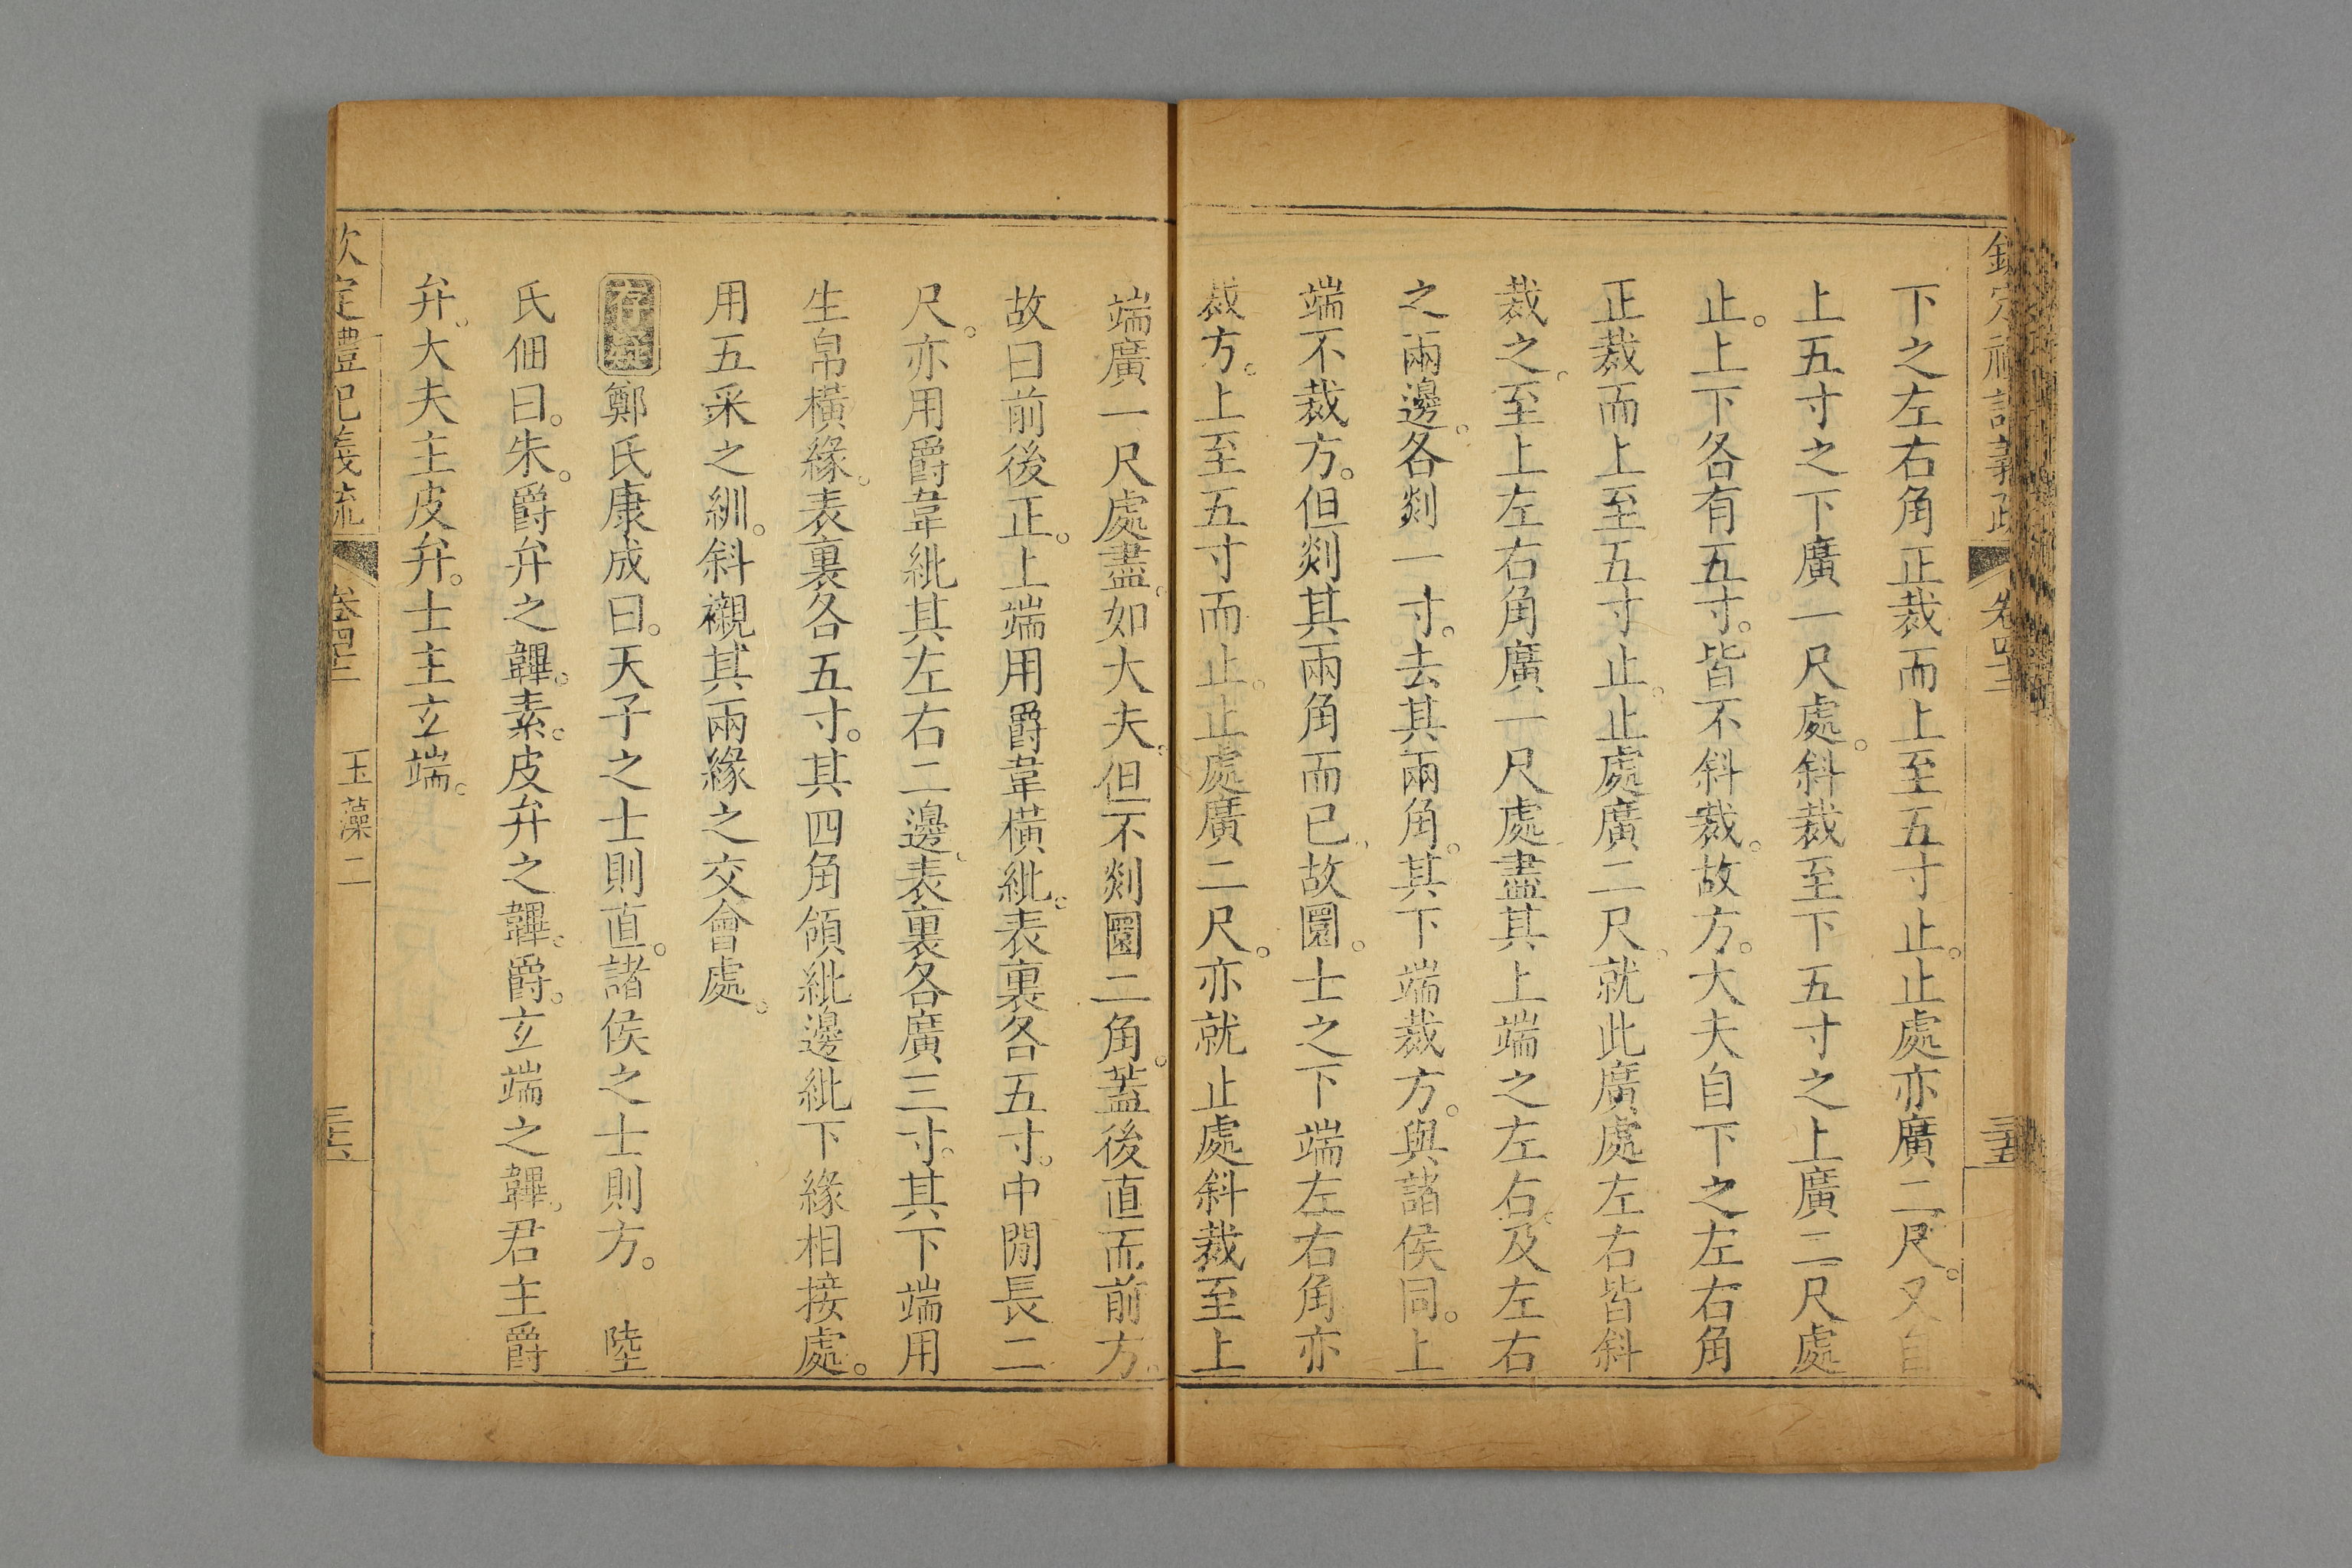 下之左右角正裁而上至五寸止。止處亦廣二尺。又自
上五寸之下廣一尺處。斜裁至下五寸之上廣二尺處
止。上下各有五寸。皆不斜裁。故方。大夫自下之左右角
正裁而上至五寸止。止處廣二尺。就此廣處左右皆斜
裁之。至上左右角廣一尺處盡其上端之左右。及左右
之兩邊。各剡一寸。去其兩角。其下端裁方。與諸侯同。上
端不裁方。但剡其兩角而已。故圜。士之下端左右角亦
裁方。上至五寸而止。止處廣二尺。亦就止處斜裁至上
端廣一尺處盡。如大夫。但不剡圜二角。蓋後直而前方。
故曰前後正。上端用爵韋橫紕。表裏各五寸。中閒長二
尺。亦用爵韋紕其左右二邊。表裏各廣三寸。其下端用
生帛橫緣。表裏各五寸。其四角領紕邊紕下緣相接處。
用五采之紃。斜襯其兩緣之交會處。
鄭氏康成曰。天子之士則直。諸侯之士則方。 陸
氏佃曰。朱。爵弁之韠。素。皮弁之韠。爵。玄端之韠。君主爵
弁。大夫主皮弁。士主玄端。
欽定禮記義疏 卷四十二 玉藻二